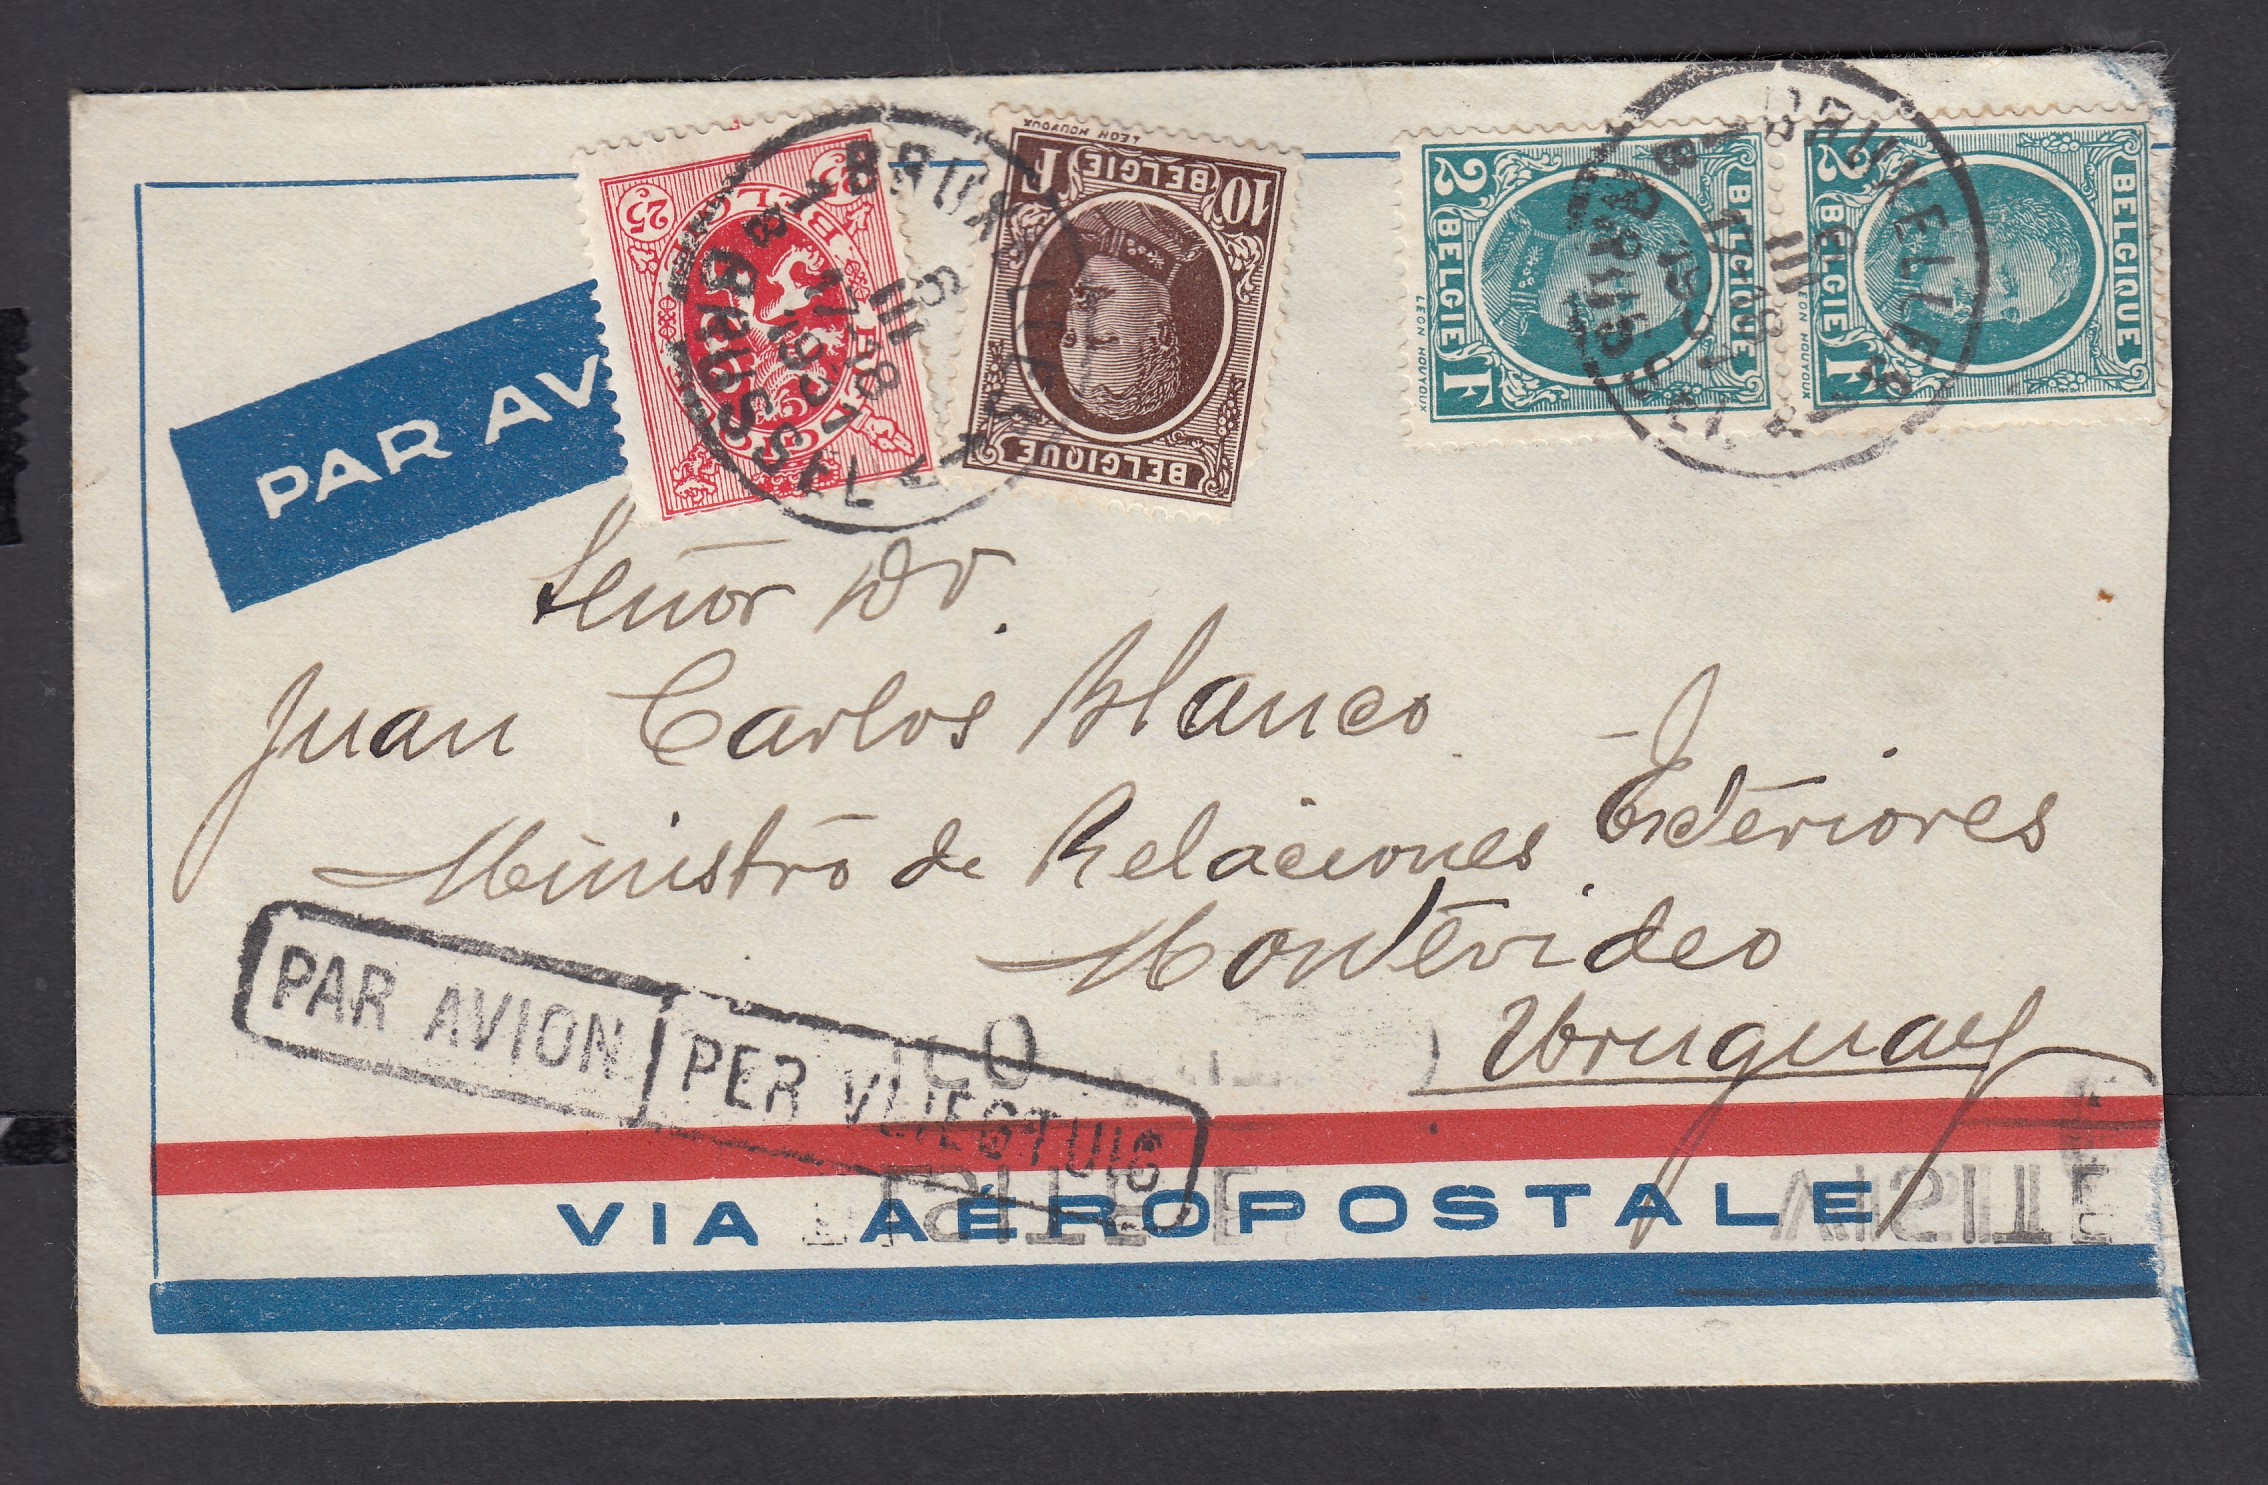 PAR AV
25
25
BELGIE
10 F
BELGIQUE
LEON HOUYOUX
BELGIE
2 F
BELGIQUE
LEON HOUYOUX
BELGIE
2 F
BELGIQUE
LEON HOUYOUX
BRUXELLES
BRUSSEL
BRUXELLES
Señor Dr.
Juan Carlos Blanco
Ministro de Relaciones Exteriores
Montevideo
Uruguay
PAR AVION PER VLIEGTUIG
VIA AÉROPOSTALE